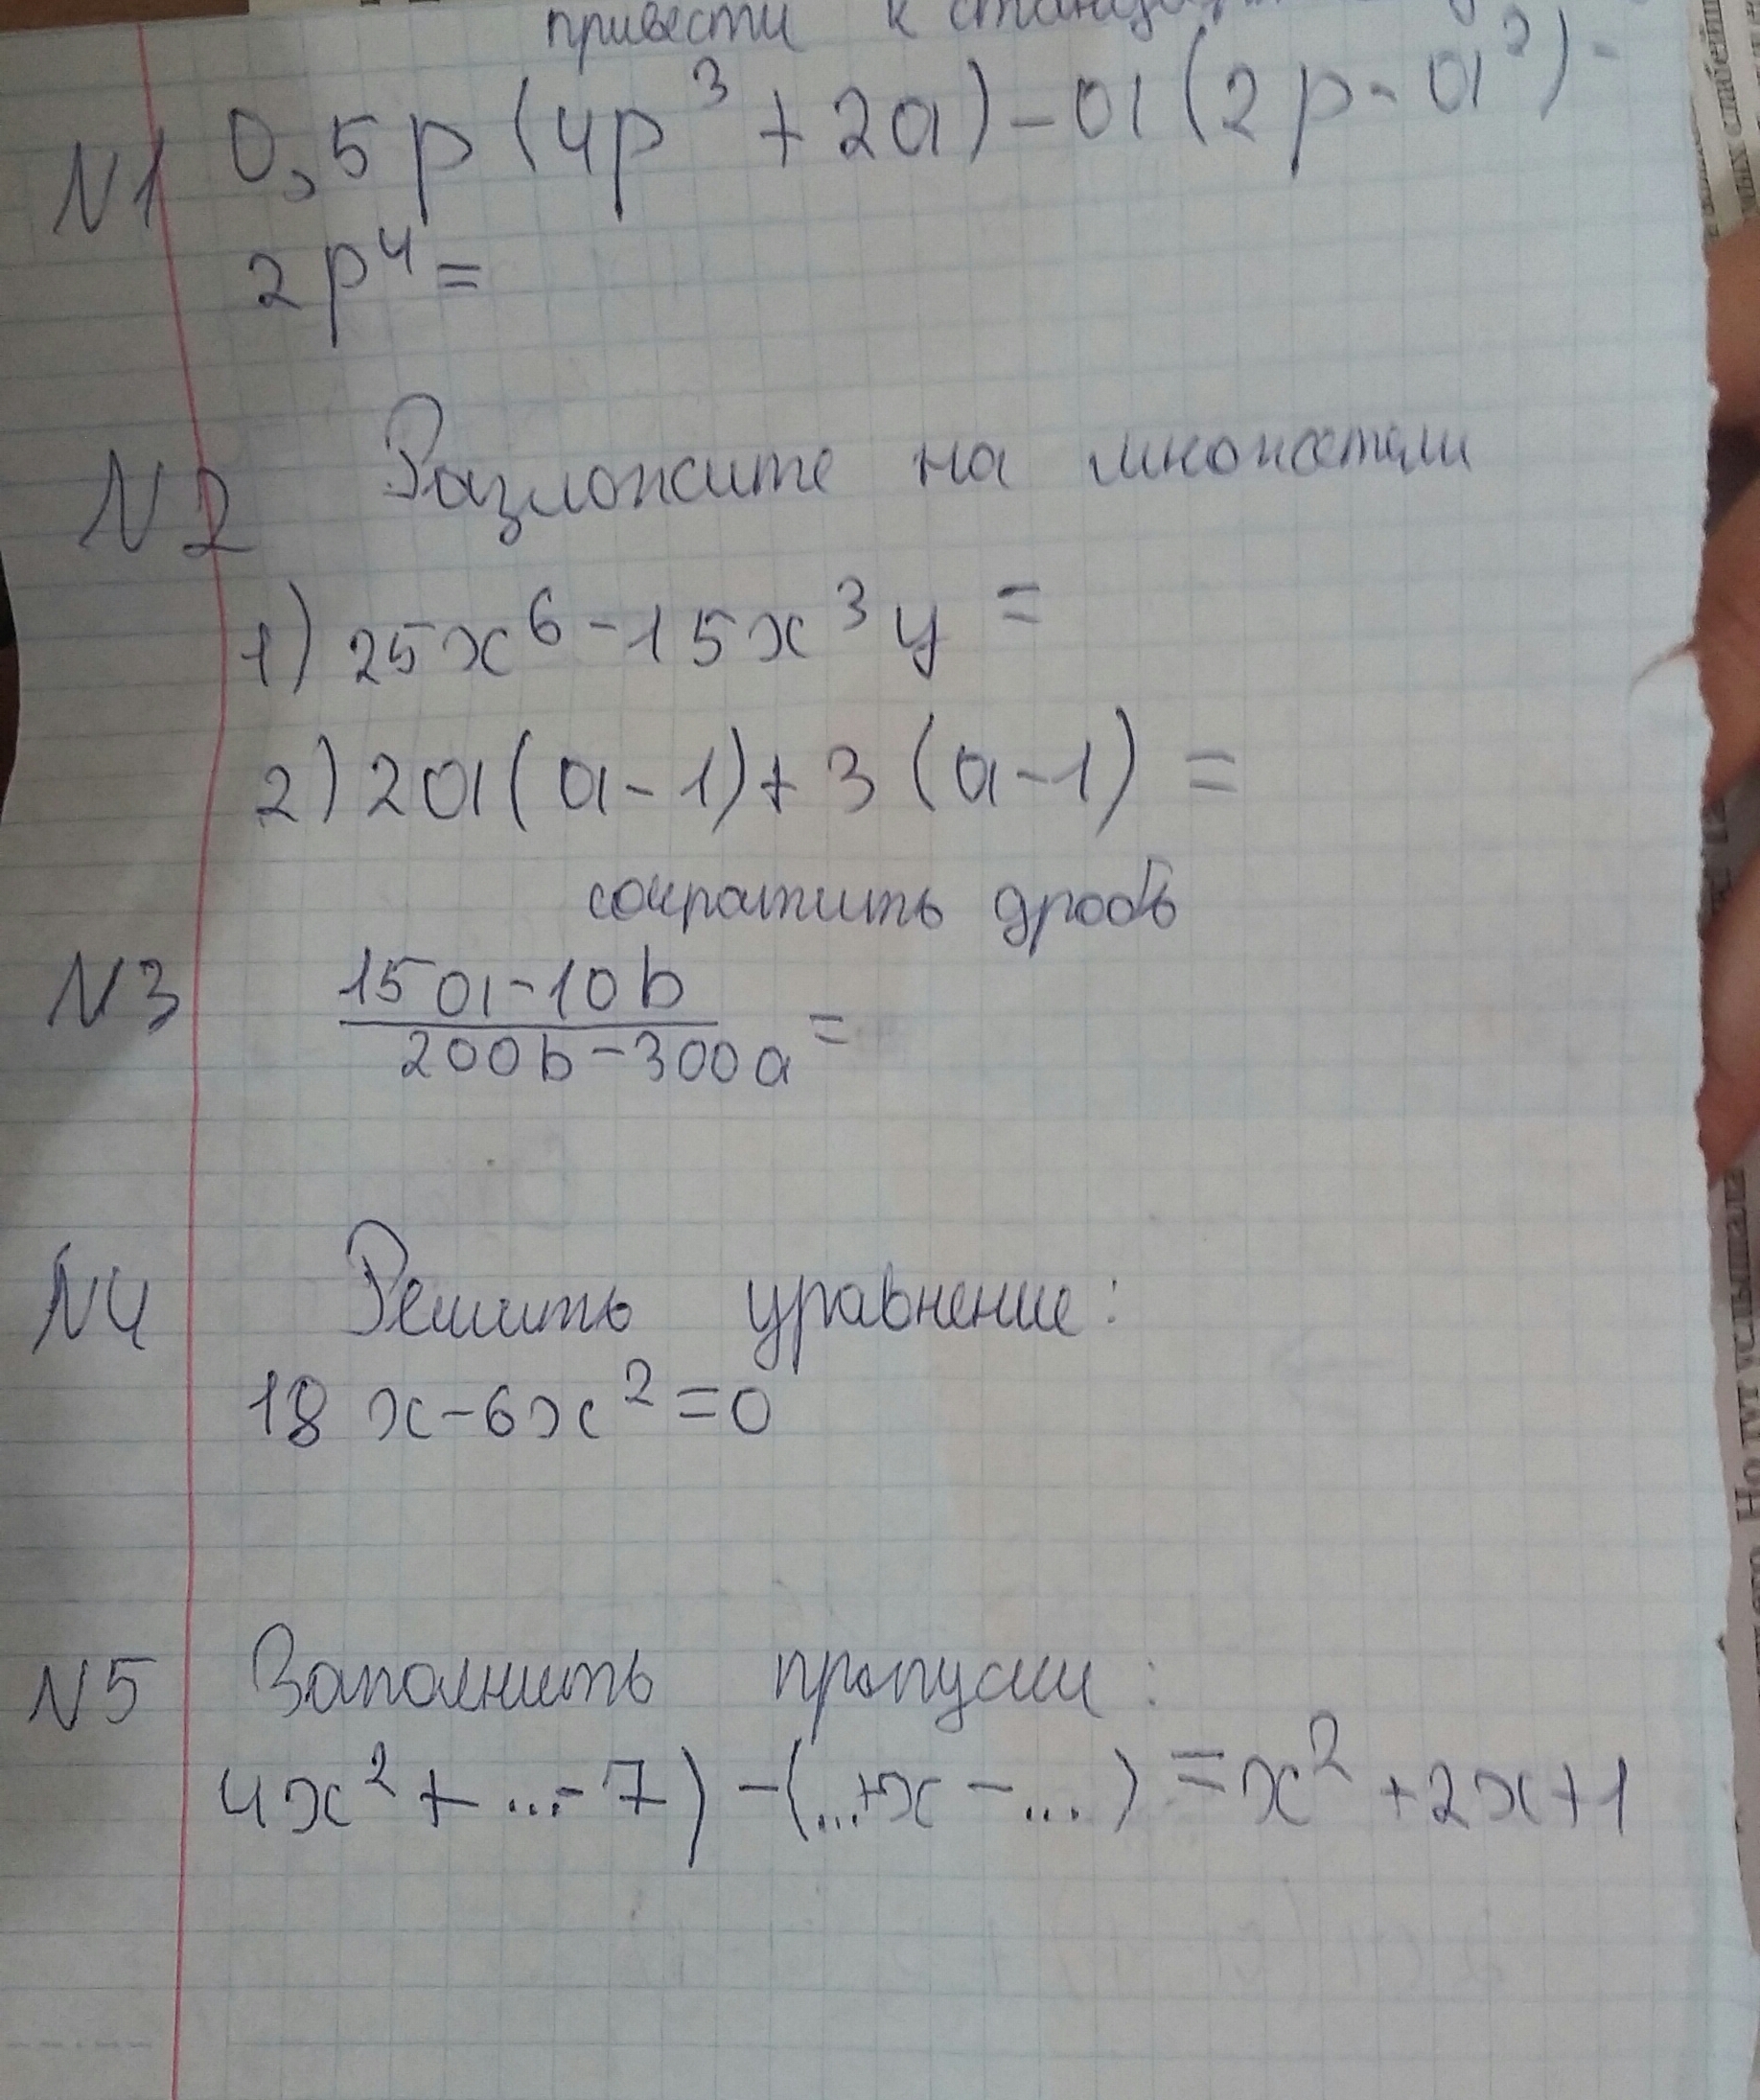 привести к
N1 0,5p(4p³+2a)-a(2p-a²)-
2p⁴=
N2 Разложите на множетели
1) 25x⁶-15x³y=
2) 2a(a-1)+3(a-1)=
сократить дробь
N3 15a-10b
200b-300a =
N4 Решить уравнение:
18x-6x²=0
N5 Заполнить пропуски:
4x²+...-7)-(...+x-...)=x²+2x+1